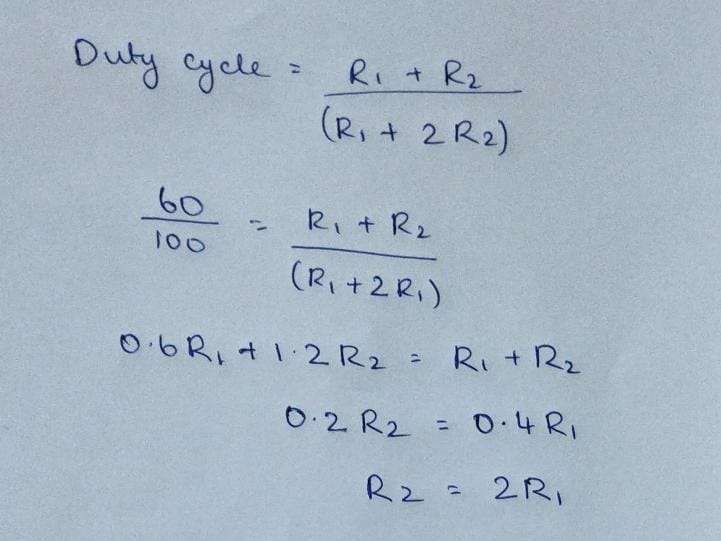 Duty cycle = R₁ + R₂ / (R₁ + 2R₂)
60/100 = R₁ + R₂ / (R₁ + 2R₁)
0.6R₁ + 1.2R₂ = R₁ + R₂
0.2R₂ = 0.4R₁
R₂ = 2R₁